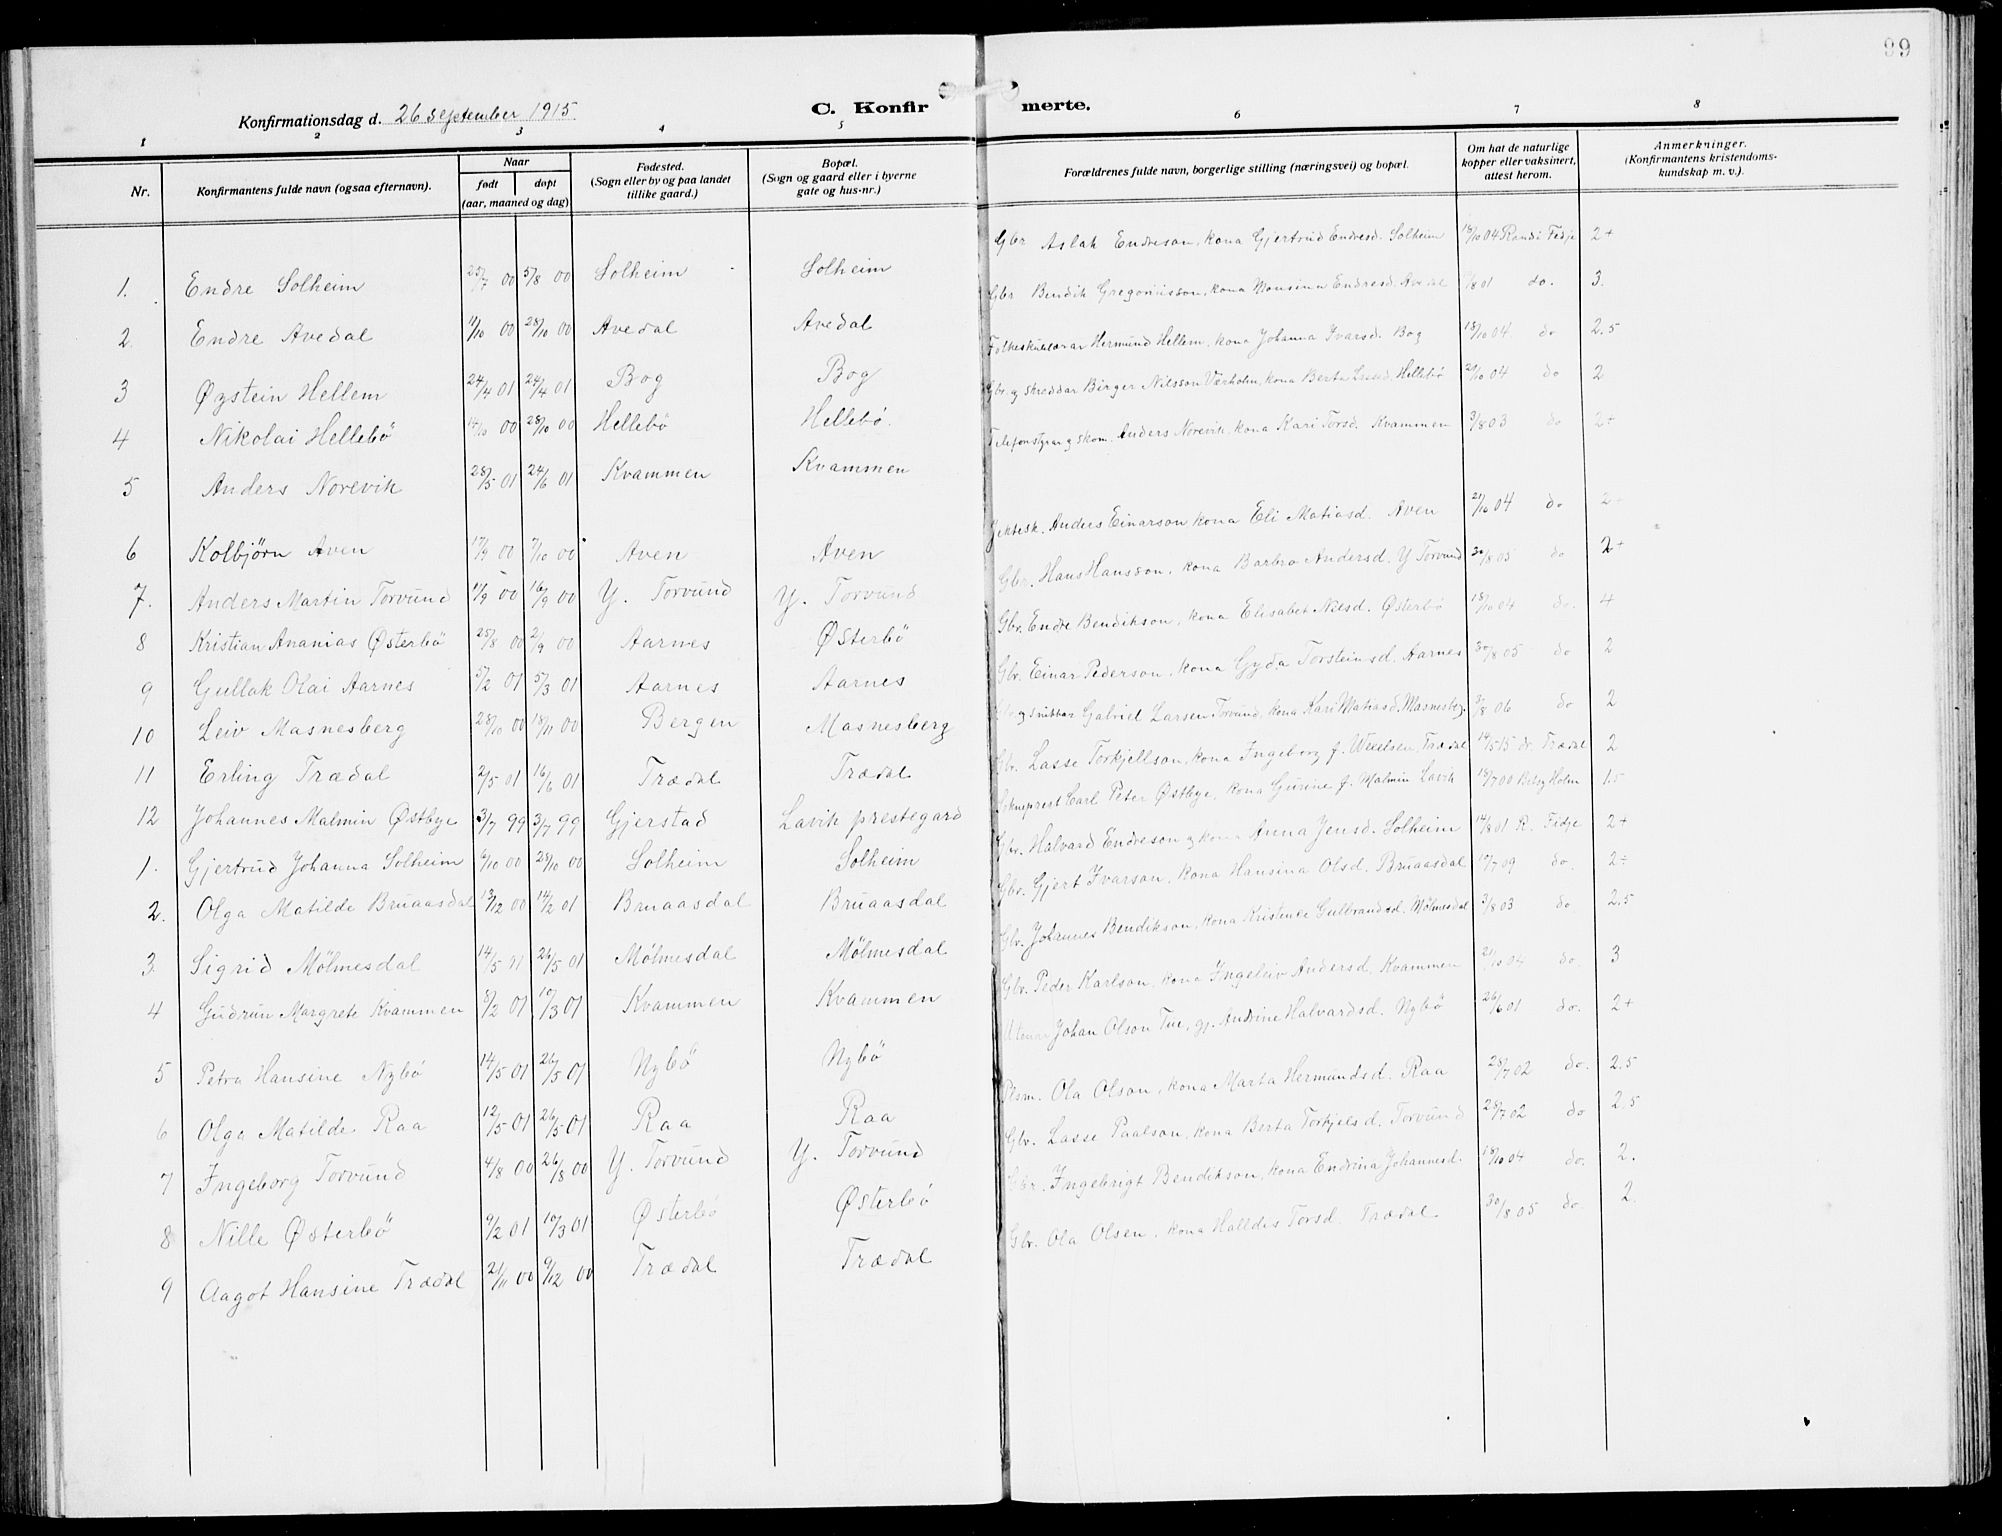 99
Konfirmationsdag d. 26 september 1915.
C. Konfirmerte.
1 2 3 4 5 6 7 8
Nr.
Konfirmantens fulde navn (ogsaa efternavn).
Naar
født døpt
(aar, maaned og dag)
Fødested.
(Sogn eller by og paa landet
tillike gaard.)
Bopæl.
(Sogn og gaard eller i byerne
gate og hus-nr.)
Forældrenes fulde navn, borgerlige stilling (næringsvei) og bopæl.
Om hat de naturlige
kopper eller vaksinert,
attest herom.
Anmerkninger.
(Konfirmantens kristendoms-
kundskap m. v.).
1. Endre Solheim 25/7 00 5/8 00 Solheim Solheim Gbr Aslak Endreson, kona Gjertrud Endresd. Solheim 18/10 04 Randi Fedje 2+
2. Endre Avedal 11/10 00 28/10 00 Avedal Avedal Gbr Bendik Gregoriusson, kona Monsina Endresd. Avedal /8 01 do. 3.
3 Øystein Hellem 24/4 01 24/4 01 Bog Bog Hermund Hellem, kona Johanna Ivarsd. Bog 18/10 04 do 2.5
4 Nikolai Hellebö 14/10 00 28/10 00 Hellebö Hellebö. Gbr. og skreddar Birger Nilsson Værholm, kona Berta Hellebö 21/10 04 do 2
5 Anders Norevik 28/5 01 24/6 01 Kvammen Kvammen Telefonstyrar og skom. Anders Norevik, kona Kari Torsd. Kvammen 3/8 03 do 2+
6 Kolbjörn Aven 17/9 00 7/10 00 Aven Aven Jektesk. Anders Einarson kona Eli Matiasd. Aven 21/10 04 do 2
7. Anders Martin Torvund 11/9 00 16/9 00 Y. Torvund Y. Torvund Gbr. Hans Hansson, kona Barbro Andersd. Y Torvund 30/8 05 do 2+
8 Kristian Ananias Østerbö 25/8 00 2/9 00 Aarnes Østerbö Gbr. Endre Bendikson, kona Elisabet Nilsd. Østerbö 18/10 04 do. 4
9 Gullak Olai Aarnes 5/2 01 5/3 01 Aarnes Aarnes Gbr. Einar Pederson, kona Gyda Torsteinsd. Aarnes 30/8 05 do 2
10 Leiv Masnesberg 28/10 00 18/11 00 Bergen Masnesberg og snikkar Gabriel Larsen Torvund, kona Kari Matiasd. Masnesbg. 3/8 06 do 2
11 Erling Trædal 2/5 01 16/6 01 Trædal Trædal Gbr. Lasse Torkjellson, kona Ingeborg f. Trædal 14/5 15 dr. Trædal 2
12 Johannes Malmin Østbye 3/7 99 3/7 99 Gjerstad Lavik prestegard Sokneprest Carl Peter Østbye, kona Gurine f. Malmin Lavik 18/7 00 Betsy Holm 1.5
1. Gjertrud Johanna Solheim 6/10 00 28/10 00 Solheim Solheim Gbr. Halvard Endreson og kona Anna Jensd. Solheim 14/8 01 R. Fedje 2+
2. Olga Matilde Bruaasdal 13/12 00 14/2 01 Bruaasdal Bruaasdal Gbr. Gjert Ivarson, kona Hansina Olsd. Bruaasdal 19/7 09 do. 2÷
3. Sigrid Mölmesdal 14/5 01 26/5 01 Mölmesdal Mölmesdal Gbr. Johannes Bendikson, kona Kristence Gulbrandsd. Mölmesdal 3/8 03 do 2.5
4 Gudrun Margrete Kvammen 8/2 01 10/3 01 Kvammen Kvammen Gbr. Peder Karlson, kona Ingeleiv Andersd. Kvammen 21/10 04 do. 3
5 Petra Hansine Nybö 14/5 01 26/5 01 Nybö Nybö Johan Olson Tue, gj. Andrine Halvardsd. Nybö 26/6 01 do. 2+
6 Olga Matilde Raa 12/5 01 26/5 01 Raa Raa Plsm. Ola Olson, kona Marta Hermundsd. Raa 28/7 02 do. 2.5
7 Ingeborg Torvund 4/8 00 26/8 00 Y. Torvund Y. Torvund Gbr. Lasse Paalson, kona Berta Torkjelsd. Torvund 28/7 02 do 2.5
8 Nille Østerbö 9/2 01 10/3 01 Østerbö Østerbö Gbr. Ingebrigt Bendikson, kona Endrina Johannesd. 18/10 04 do. 2.
9 Aagot Hansine Trædal 21/11 00 9/12 00 Trædal Trædal Gbr. Ola Olsen, kona Halldis Torsd. Trædal 30/8 05 do. 2.